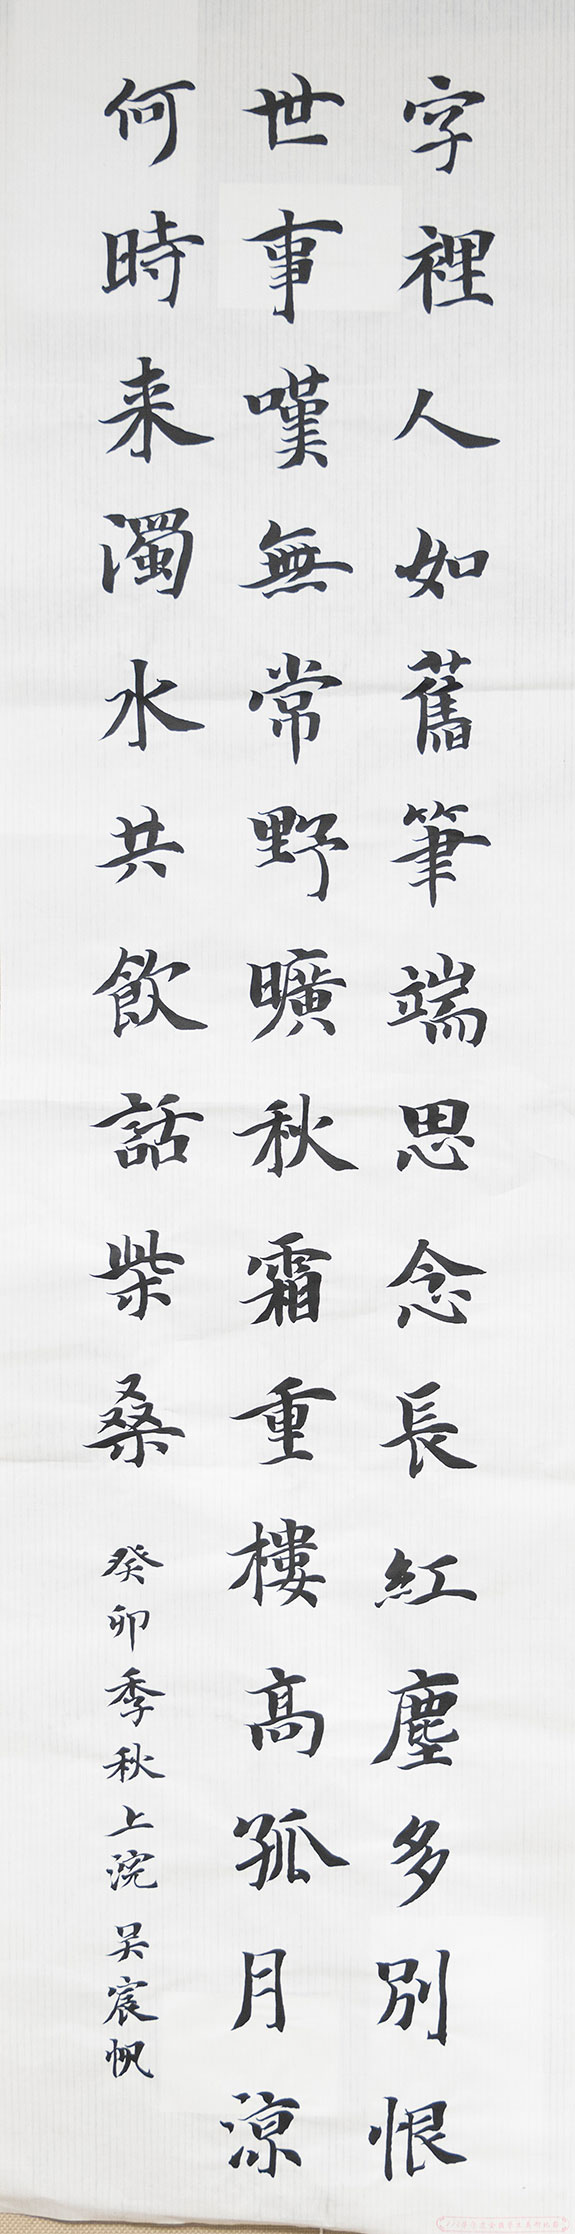 字裡人如舊筆端思念長紅塵多別恨
世事嘆無常野曠秋霜重樓高孤月涼
何時来濁水共飲話柴桑
癸卯季秋上浣吴宸帆